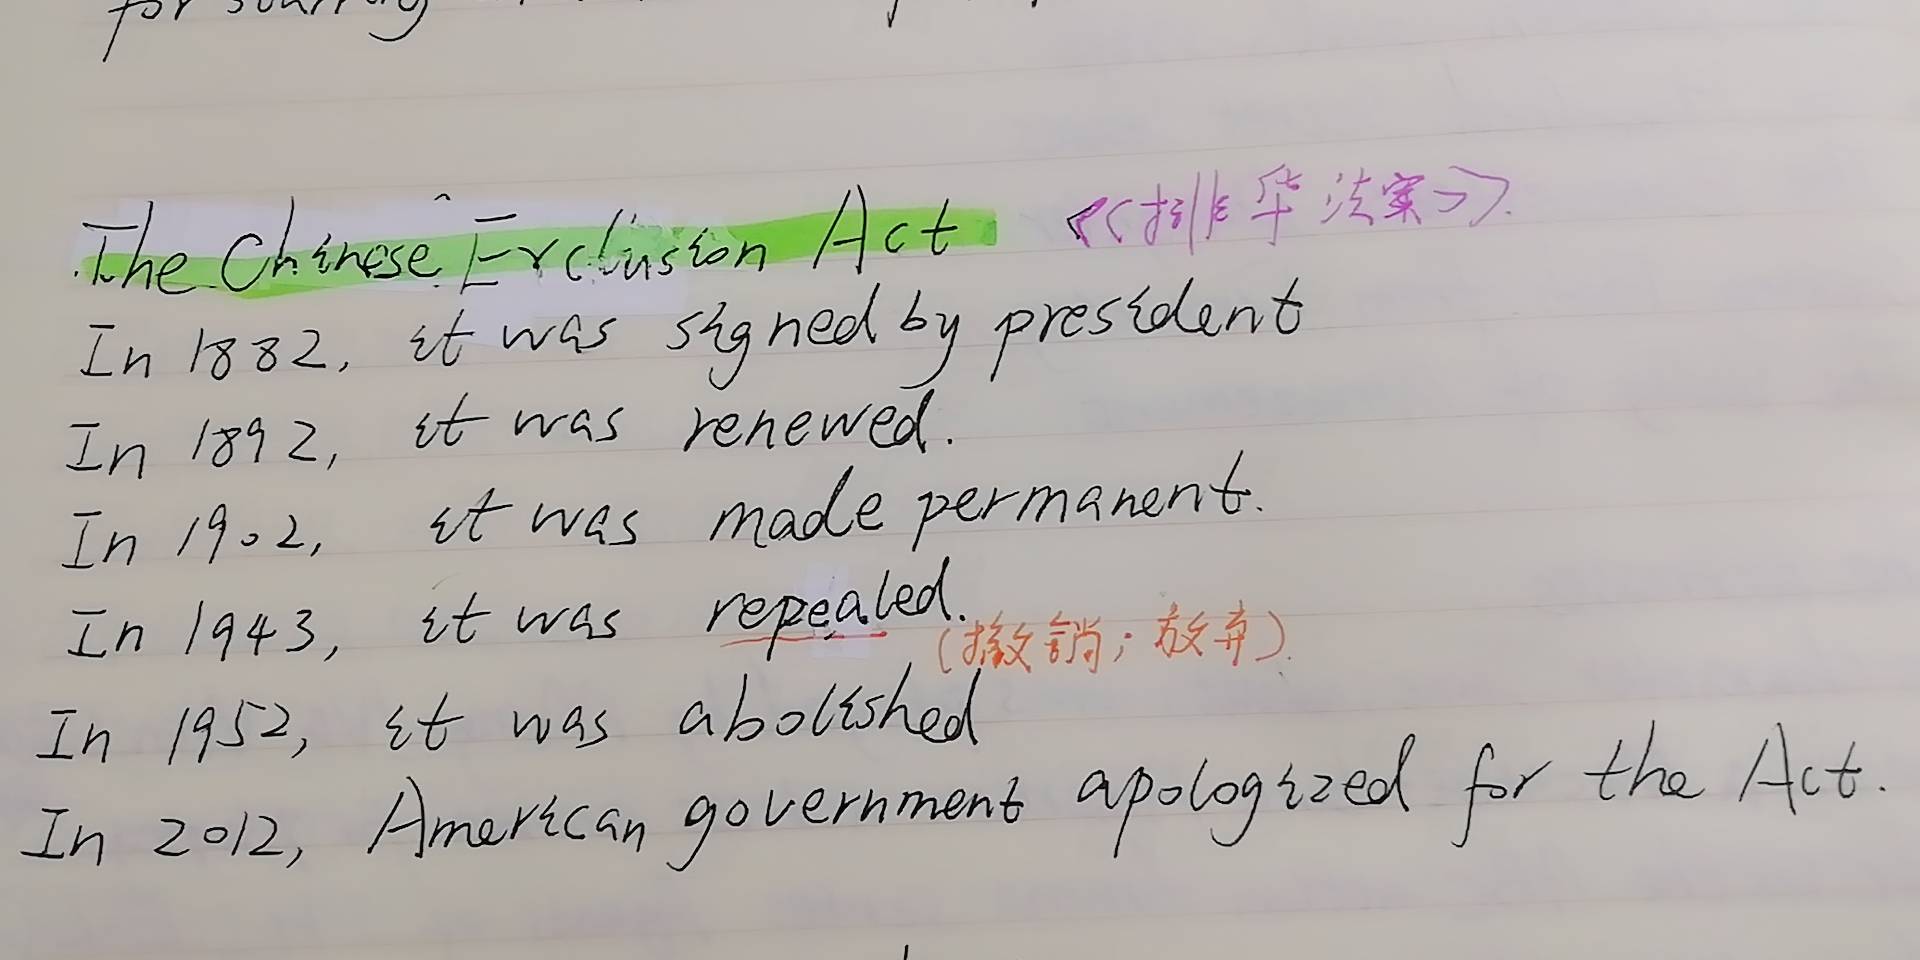 for
The Chinese Exclusion Act 《排华法案》.
In 1882, it was signed by president
In 1892, it was renewed.
In 1902, it was made permanent.
In 1943, it was repealed. (撤销; 放弃).
In 1952, it was abolished
In 2012, American government apologized for the Act.